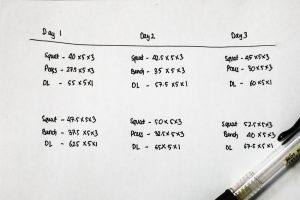 Day 1 Day 2 Day 3
Squat - 40 x 5 x 3 Squat - 42.5 x 5 x 3 Squat - 45 x 5 x 3
Press - 27.5 x 5 x 3 Bench - 35 x 5 x 3 Press - 30 x 5 x 3
DL - 55 x 5 x 1 DL - 57.5 x 5 x 1 DL - 60 x 5 x 1
Squat - 47.5 x 5 x 3 Squat - 50 x 5 x 3 Squat 52.5 x 5 x 3
Bench - 37.5 x 5 x 3 Press - 32.5 x 5 x 3 Bench 40 x 5 x 3
DL - 62.5 x 5 x 1 DL - 65 x 5 x 1 DL - 67.5 x 5 x 1